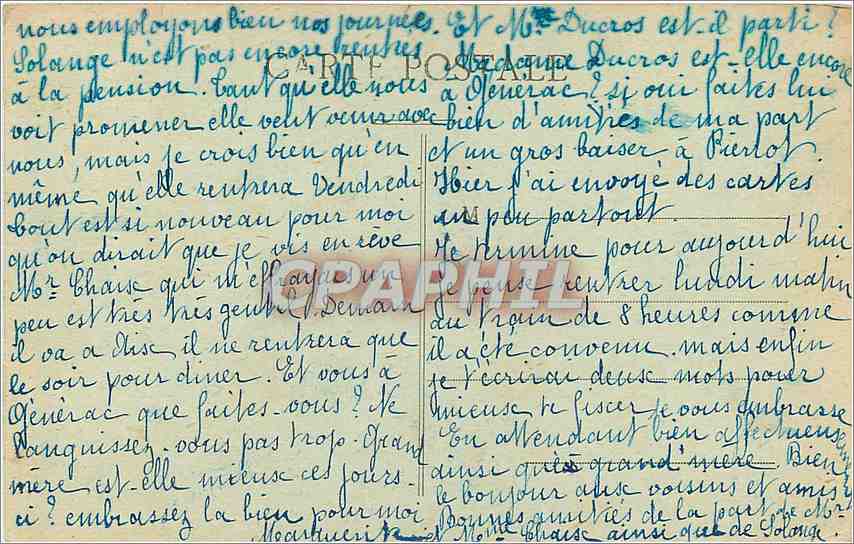 nous employons bien nos journées.
Solange n'est pas encore rentrée
à la pension. Tant qu'elle nous
voit promener elle veut venir avec
nous, mais je crois bien qu'en
même qu'elle rentrera Vendredi
tout est si nouveau pour moi
qu'on dirait que je vis en rêve
Mr. Chaise qui m'effrayait un
peu est très très gentil. Demain
il va a Aix il ne rentrera que
le soir pour diner. Et vous à
Générac que faites-vous? Ne
languissez-vous pas trop. Grand
mère est-elle mieux ces jours-
ci? embrassez la bien pour moi
Marguerite
Et Mr Ducros est-il parti?
Madame Ducros est-elle encore
a Générac? si oui faites lui
bien d'amitiés de ma part
et un gros baiser à Pierrot.
Hier j'ai envoyé des cartes
un peu partout.
Je termine pour aujourd'hui
je pense rentrer lundi matin
au train de 8 heures comme
il a été convenu. mais enfin
je t'écrirai deux mots pour
mieux te fixer je vous embrasse
En attendant bien affectueusement
ainsi que grand'mère. Bien
le bonjour aux voisins et amis
Bonnes amitiés de la part de Mr
et Mme Chaise ainsi que de Solange.
CARTE POSTALE
M
CPAPHIL